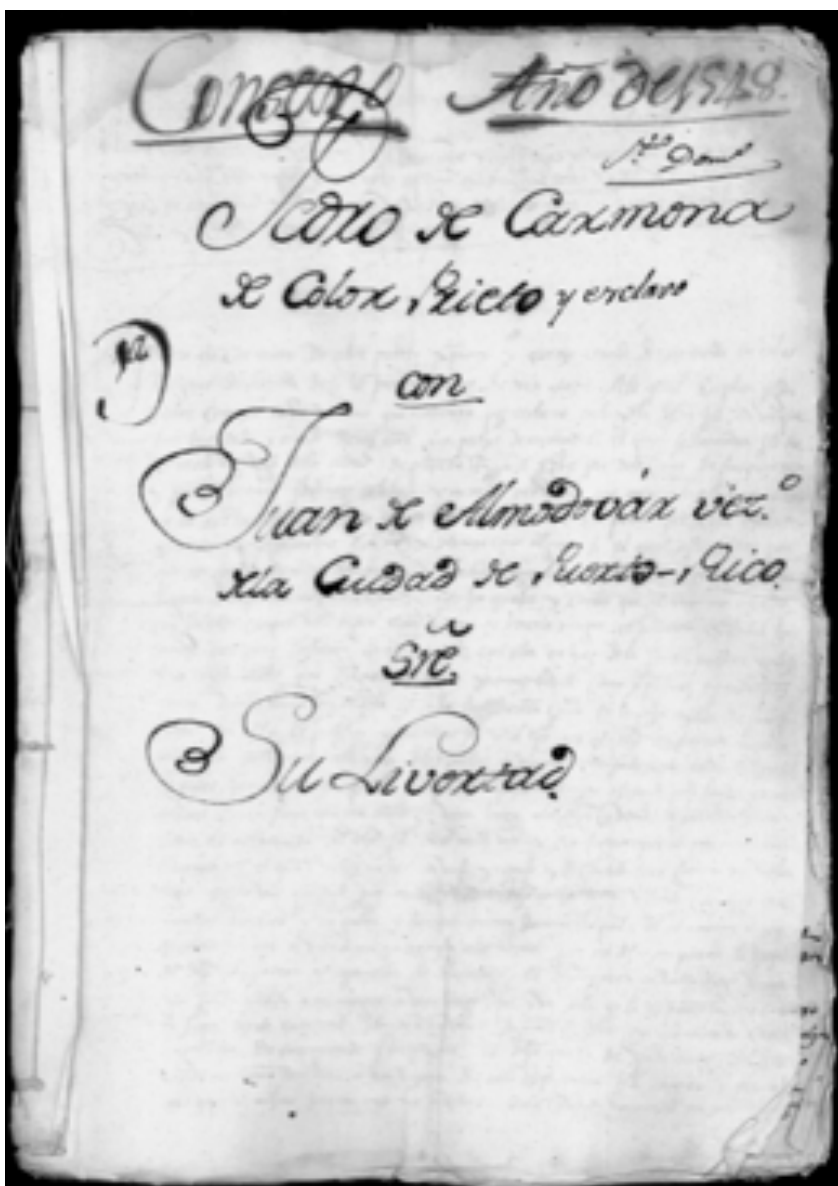 Consejo Año de 1548.
Sto Domo
Pedro de Carmona
de Color Prieto y esclavo
con
Juan de Almodovár vezo.
dela Ciudad de Puerto-Rico.
Sre
Su Livertad.